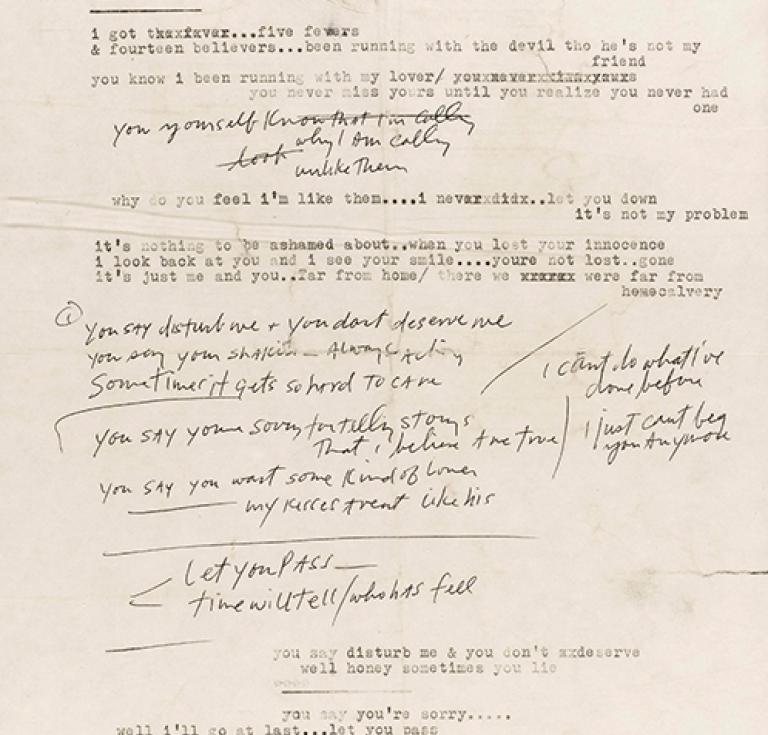 i got tkaxfavar...five fevers
& fourteen believers...been running with the devil tho he's not my
friend
you know i been running with my lover/
you never miss yours until you realize you never had
one
you yourself Know that I'm Calling
Look why I Am Calling
unlike Them
why do you feel i'm like them....i nevarxdidx..let you down
it's not my problem
it's nothing to be ashamed about..when you lost your innocence
i look back at you and i see your smile....youre not lost..gone
it's just me and you..far from home/ there we xxxxxx were far from
homecalvery
① You say disturb me + you dont deserve me
you say your shakin – Always Acting
Sometimes it gets so hard to care
I can't do what I've
done before
I just cant beg
you Anymore
you say youre sorry for telling storys
That i believe Are true
you say you want some Kind of Lover
my Kisses Arent like his
Let you PASS —
time will tell/who has fell
you say disturb me & you don't xxdeserve
well honey sometimes you lie
you say you're sorry.....
well i'll go at last...let you pass